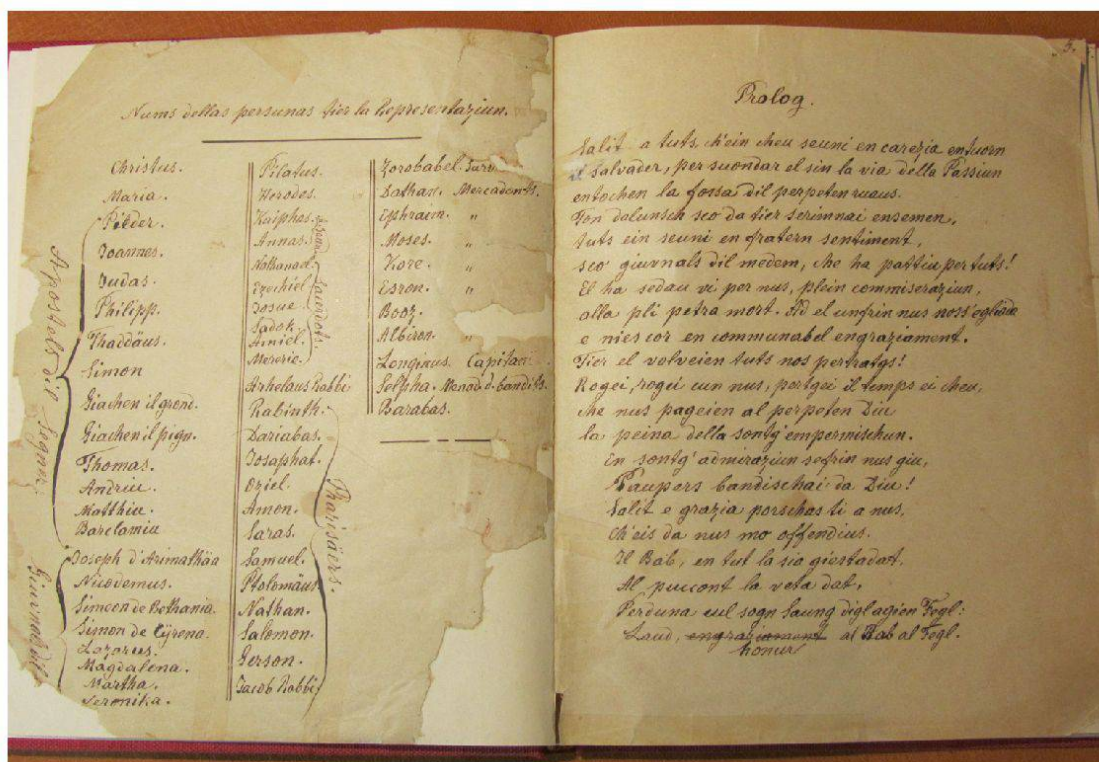 Nums dellas persunas tier la Representaziun.
Christus.
Maria.
Pieder.
Joannes.
Judas.
Philipp.
Thaddäus.
Simon
Giachen il grond.
Giachen il pign.
Thomas.
Andriu.
Matthiu.
Barclamia
Apostels dil Segner.
Joseph d'Arimathäa
Nicodemus.
Simeon de Bethania.
Simon de Cÿrena.
Lazarus.
Magdalena.
Martha.
Veronika.
Pilatus.
Herodes.
Kaiphas.
Annas.
Nathanael
Ezechiel
Josue
Sadok
Amiel.
Mererie.
Sacerdots.
Arhelaus Rabbi
Rabinth.
Dariabas.
Josaphat.
Oziel.
Amon.
Saras.
Samuel.
Ptolomäus
Nathan.
Salomon.
Gerson.
Jacob Rabbi
Pharisäers.
Zorobabel.
Dathan. Mercadonts.
Ephraim. "
Moses. "
Kore. "
Esron. "
Booz.
Albiron. "
Longinus. Capitan
Selpha. d. bandits.
Barabas.
3.
Prolog.
Salit a tuts, ch'ein cheu seuni en carezia entuorn
il Salvader, per suondar el sin la via della Passiun
entochen la fossa dil perpeten ruaus.
Von dalunsch sco da tier serimnai ensemen,
tuts ein seuni en fratern sentiment,
sco giuvnals dil medem, che ha pattiu per tuts!
El ha sedau vi per nus, plein commiseraziun,
alla pli petra mort. Ad el unfrin nus noss' egliada
e nies cor en communabel engraziament.
Tier el volveien tuts nos pertratgs!
Rogei, rogei cun nus, pertgei il temps ei cheu,
che nus pageien al perpeten Diu
la peina della sontg' empermischun.
En sontg' admiraziun sefrin nus giu,
Paupers bandischai da Diu!
Salit e grazia porschas ti a nus,
Ch'eis da nus mo offendius.
Il Bab, en tut la sia giestadat,
Al puccont la veta dat,
Perduna cul sogn Saung digl agien Fegl:
Laud, engraziament al Bab al Fegl.
honur